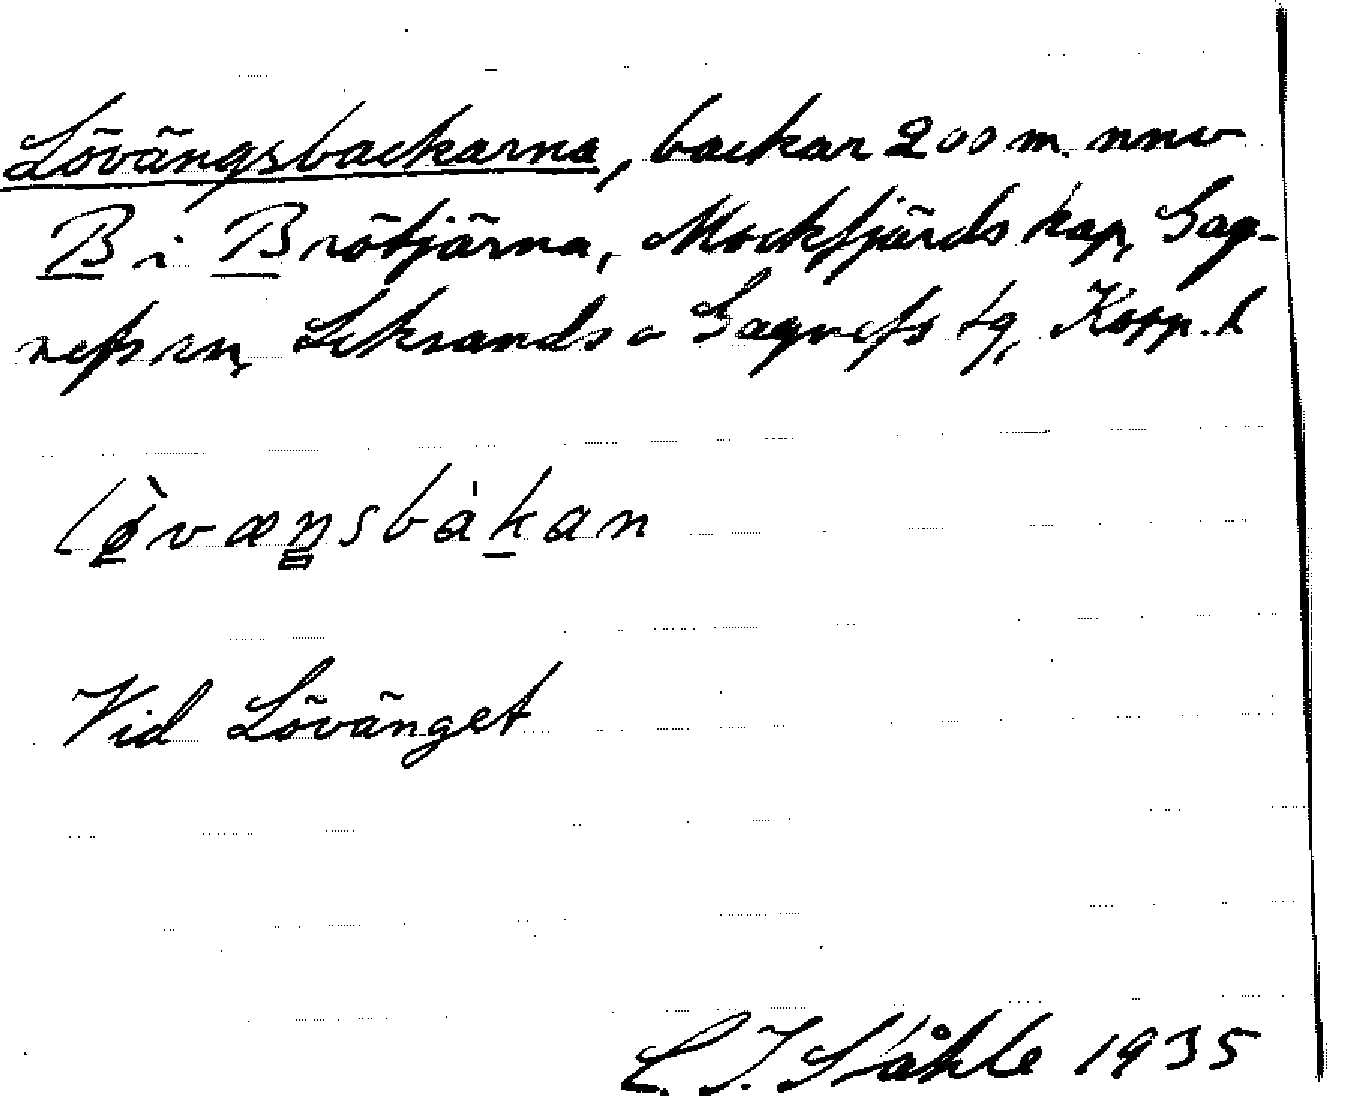 Lövängsbackarna, backar 200 m. nnv
B i Brötjärna, Mockfjärds kap, Gag-
nefs sn, Leksands o Gagnefs tg, Kopp. l
lø̀væŋsbàkan
Vid Lövänget
C. I. Ståhle 1935